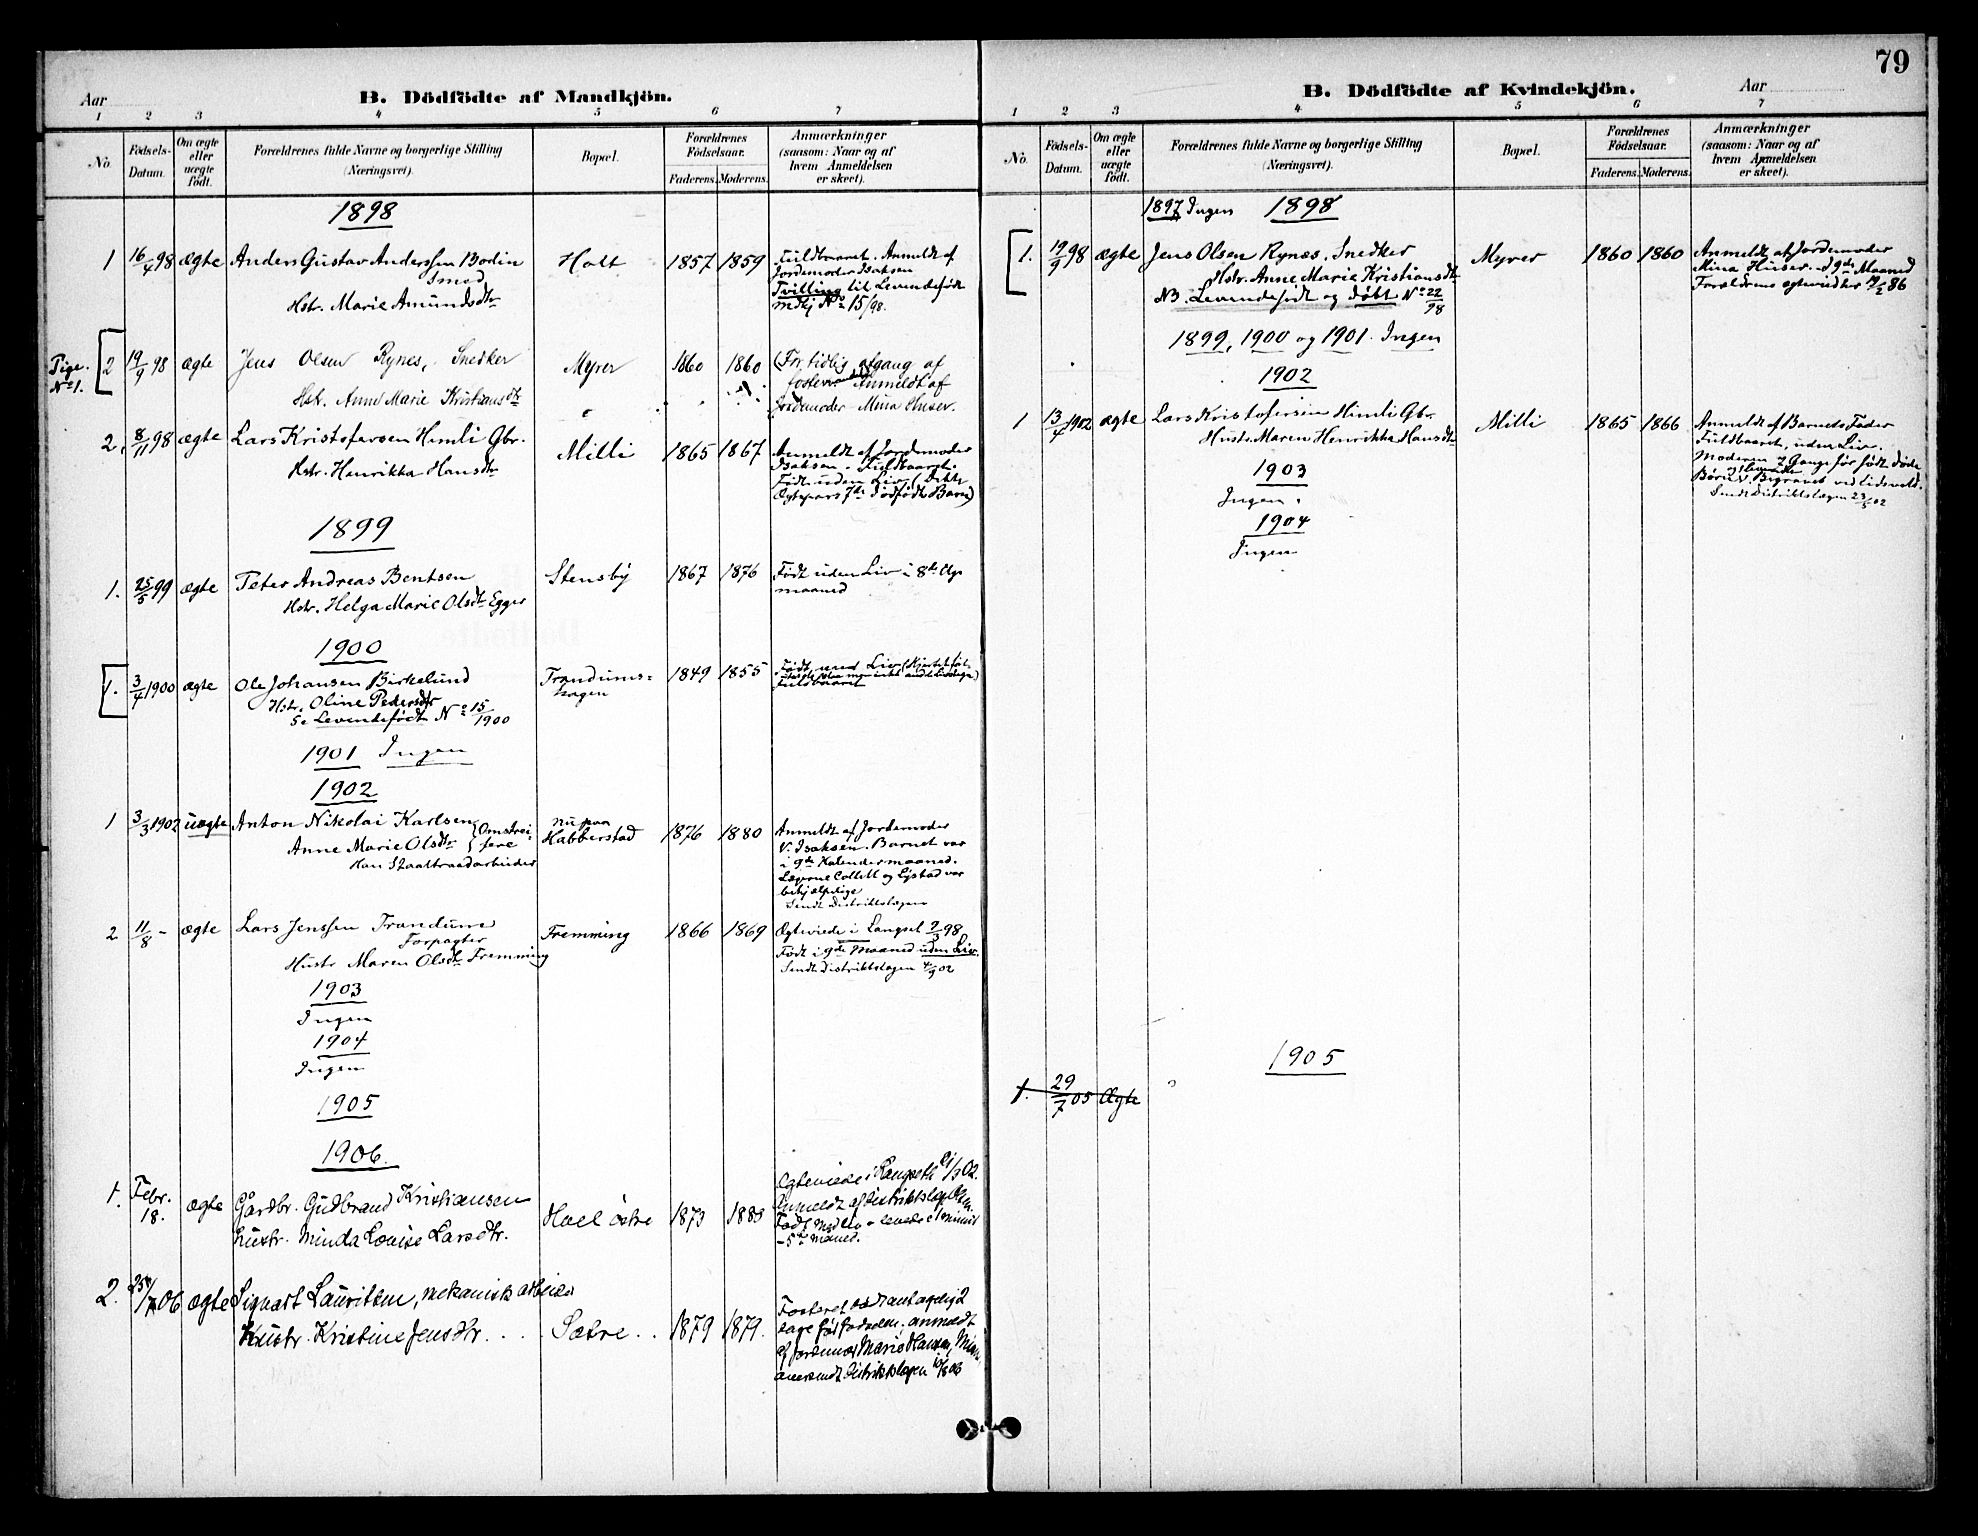 79
Aar
B. Dödfödte af Mandkjön.
1 2 3 4 5 6 7
No.
Födsels-
Datum.
Om ægte
eller
uægte
födt.
Forældrenes fulde Navne og borgerlige Stilling
(Næringsvei).
Bopæl.
Forældrenes
Födselsaar.
Faderens. Moderens.
Anmærkninger
(saasom: Naar og af
hvem Anmeldelsen
er skeet).
1898
1 16/4 98 ægte Anders Gustav Anderssen Bodin Holt 1857 1859 Fuldbaaret. Anmeldt af
Smed Jordemoder Isaksen
Hstr. Marie Amundsdtr Tvilling til Levendefødt
mdkj No 15/98.
Pige.
No 1.
2 19/9 98 ægte Jens Olsen Rynes, Snedker Myrer 1860 1860 (For tidlig afgang af
Anmeldt af
Hstr. Anne Marie Kristiansdtr Jordemoder Mina Huser.
2. 8/11 98 ægte Lars Kristofersen Himli Gbr. Milli 1865 1867 Anmeldt af Jordemoder
Hstr. Henrikka Hansdtr Isaksen. Fuldbaaret.
Født uden Liv (Dette
Ægtepars 7de dødfødt Barn)
1899
1. 25/5 99 ægte Peter Andreas Bentsen Stensby 1867 1876 Født uden Liv i 8de
Hstr. Helga Marie Olsdtr Egger maaned
1900
1. 3/4 1900 ægte Ole Johansen Birkelund Trandums- 1849 1855 Født med Liv
Hstr. Oline Pedersdtr hagen
Se Levendefødt No 15/1900 fuldbaaret
1901 Ingen
1902
1 3/3 1902 uægte Anton Nikolai Karlsen nu paa
Anne Marie Olsdtr Omstrei-
fere Habberstad 1876 1880 Anmeldt af Jordemoder
Han Staaltraadarbeider V. Isaksen. Barnet var
i 9de Kalendermaaned.
Lægerne Collett og Lystad var
behjælpelige
Sendt Distriktslægen
2 11/8 - ægte Lars Jenssen Trandum Fremming 1866 1869 Ægteviede i Langset 98
Forpagter Født i 9de Maaned uden Liv.
Hustr Maren Olsdtr Fremming Sendt Distriktslægen 4/9 02
1903
Ingen
1904
Ingen
1905
1906.
1. Febr.
18. ægte Gårdbr. Gudbrand Kristiansen Hoel østre 1873 Ægteviede i Langseth 02.
Hustr. Minda Lovise Larsdtr. Anmeldt af Distriktslæg
Født med liv
5te Maaned.
2. 25/7 06 ægte Sigvart Lauritsen, mekanisk arbeider
Hustr. Kristine Jensdtr. . . . Sætre . . 1879 1879. Fosteret dødt antagelig 2
dage før fødselen. anmeldt
af jordemor Marie Hansen,
distriktslægen 06
B. Dödfödte af Kvindekjön.
Aar
1 2 3 4 5 6 7
No.
Födsels-
Datum.
Om ægte
eller
uægte
födt.
Forældrenes fulde Navne og borgerlige Stilling
(Næringsvei).
Bopæl.
Forældrenes
Födselsaar.
Faderens. Moderens.
Anmærkninger
(saasom: Naar og af
hvem Anmeldelsen
er skeet).
1897 Ingen 1898
1. 19/9 98 ægte Jens Olsen Rynes, Snedker Myrer 1860 1860 Anmeldt af Jordemoder
Hstr. Anne Marie Kristiansdtr Mina Huser. I 9de Maaned
NB. Levendefødt og døbt No 22/98 Forældrene ægteviedes 86
1899, 1900 og 1901. Ingen
1902
1 13/4 1902 ægte Lars Kristofersen Himli Gbr. Milli 1865 1866 Anmeldt af Barnets Fader
Hustr. Maren Henrikka Hansdtr Fuldbaaret, uden Liv.
Moderen 7 Gange før født døde
Børn. Begravet ved Eidsvold.
Sendt Distriktslægen 23/5 02
1903
Ingen.
1904
Ingen
1905
1. 29/7 05 Ægte